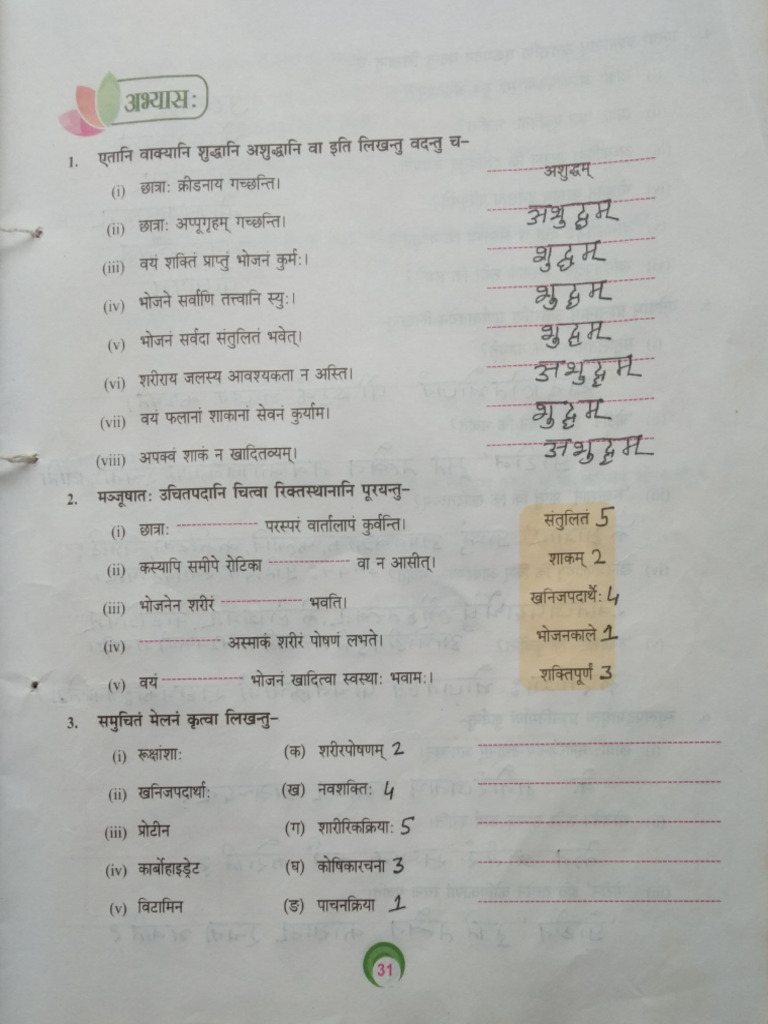 अभ्यासः
1. एतानि वाक्यानि शुद्धानि अशुद्धानि वा इति लिखन्तु वदन्तु च–
(i) छात्राः क्रीडनाय गच्छन्ति। अशुद्धम्
(ii) छात्राः अप्पूगृहम् गच्छन्ति। अशुद्धम्
(iii) वयं शक्तिं प्राप्तुं भोजनं कुर्मः। शुद्धम्
(iv) भोजने सर्वाणि तत्त्वानि स्युः। शुद्धम्
(v) भोजनं सर्वदा संतुलितं भवेत्। शुद्धम्
(vi) शरीराय जलस्य आवश्यकता न अस्ति। अशुद्धम्
(vii) वयं फलानां शाकानां सेवनं कुर्याम। शुद्धम्
(viii) अपक्वं शाकं न खादितव्यम्। अशुद्धम्
2. मञ्जूषातः उचितपदानि चित्वा रिक्तस्थानानि पूरयन्तु–
(i) छात्राः ---------------- परस्परं वार्तालापं कुर्वन्ति। संतुलितं 5
(ii) कस्यापि समीपे रोटिका ---------------- वा न आसीत्। शाकम् 2
(iii) भोजनेन शरीरं ---------------- भवति। खनिजपदार्थैः 4
(iv) ---------------- अस्माकं शरीरं पोषणं लभते। भोजनकाले 1
(v) वयं ---------------- भोजनं खादित्वा स्वस्थाः भवामः। शक्तिपूर्णं 3
3. समुचितं मेलनं कृत्वा लिखन्तु–
(i) रूक्षांशाः (क) शरीरपोषणम् 2
(ii) खनिजपदार्थाः (ख) नवशक्तिः 4
(iii) प्रोटीन (ग) शारीरिकक्रियाः 5
(iv) कार्बोहाइड्रेट (घ) कोषिकारचना 3
(v) विटामिन (ङ) पाचनक्रिया 1
31